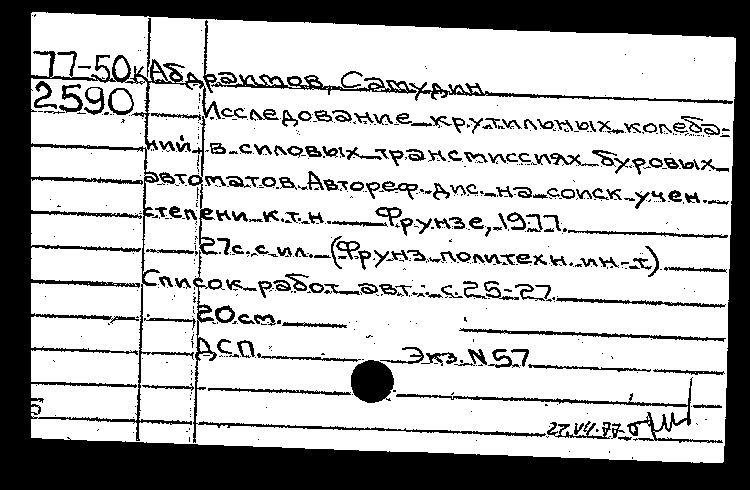 77-50к Абдраимов, Самудин
2590 Исследование крутильных колеба-
ний в силовых трансмиссиях буровых
автоматов. Автореф. дис. на соиск. учен.
степени к.т.н. Фрунзе, 1977.
27с. с ил. (Фрунз. политехн. ин-т)
Список работ авт.: с.25-27
20см.
ДСП. Экз. N57
5